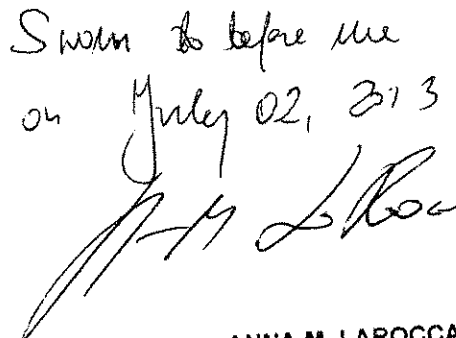 Sworn to before me
on July 02, 2013
ANNA M. LAROCCA